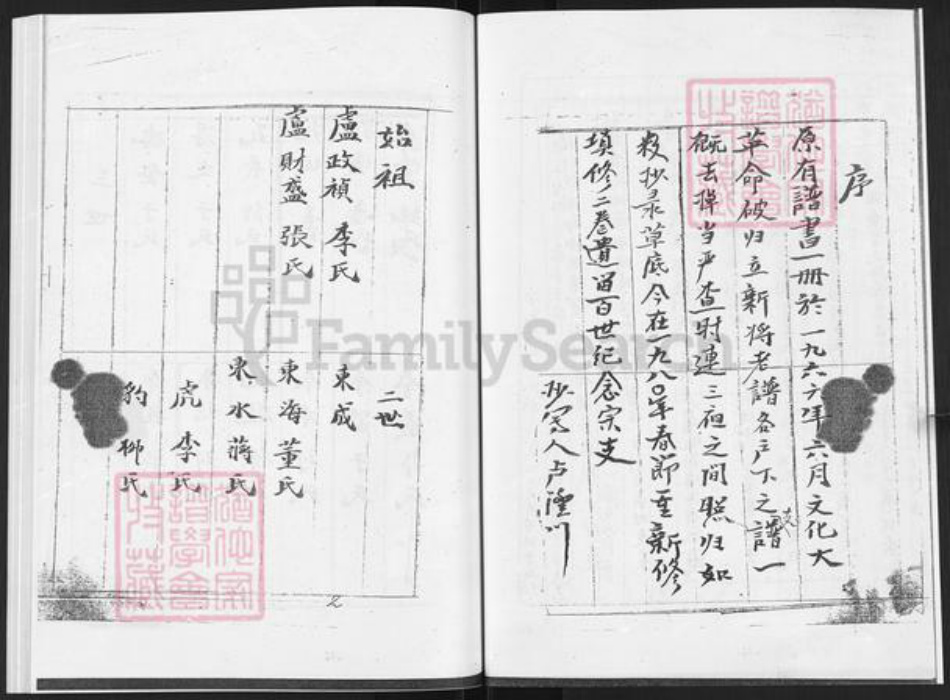 序
原有譜書一册於一九六六年六月文化大
革命破归立新将老譜各户下之譜支一
概去掉当严查时連三夜之间照归如
数抄录草底今在一九八〇年春節重新修
填修二卷遺留百世纪念宗支
抄写人卢
始祖
盧政禎 李氏
盧財盛 張氏
二世
東成
東海 董氏
東水 蔣氏
虎 李氏
豹 柳氏
2
FamilySearch